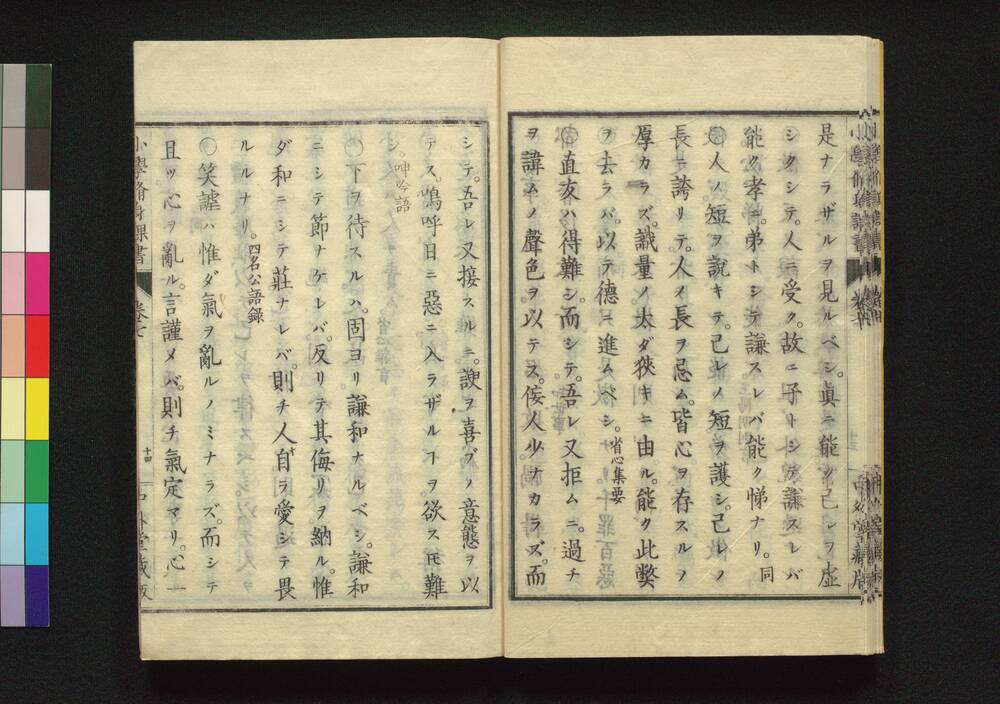 是ナラザルヲ見ルベシ。眞ニ能ク己レヲ虚
シクシテ。人ニ受ク。故ニ子トシテ謙スレバ
能ク孝ニ。弟トシテ謙スレバ能ク悌ナリ。同
○人ノ短ヲ說キテ。己レノ短ヲ護シ。己レノ
長ニ誇リテ。人ノ長ヲ忌ム。皆心ヲ存スルノ
厚カラズ。識量ノ太ダ狹キニ由ル。能ク此獘
ヲ去ラバ。以テ德ニ進ムベシ。省心集要
○直友ハ得難シ。而シテ。吾レ又拒ムニ。過チ
ヲ諱ムノ聲色ヲ。以テス。佞人少ナカラズ。而
シテ。吾レ又接スルニ。諛ヲ喜ブノ意態ヲ以
テス。嗚呼日ニ惡ニ入ラザルヿヲ欲ス𪜈難
シ。呻吟語
○下ヲ待スルハ。固ヨリ謙和ナルベシ。謙和
ニシテ節ナケレバ。反リテ其侮リヲ納ル。惟
ダ和ニシテ莊ナレバ。則チ人自ラ愛シテ畏
ルルナリ。四名公語錄
○笑謔ハ惟ダ氣ヲ亂ルノミナラズ。而シテ
且ツ心ヲ亂ル。言謹メバ。則チ氣定マリ。心一
小學脩身課書 卷七 十四